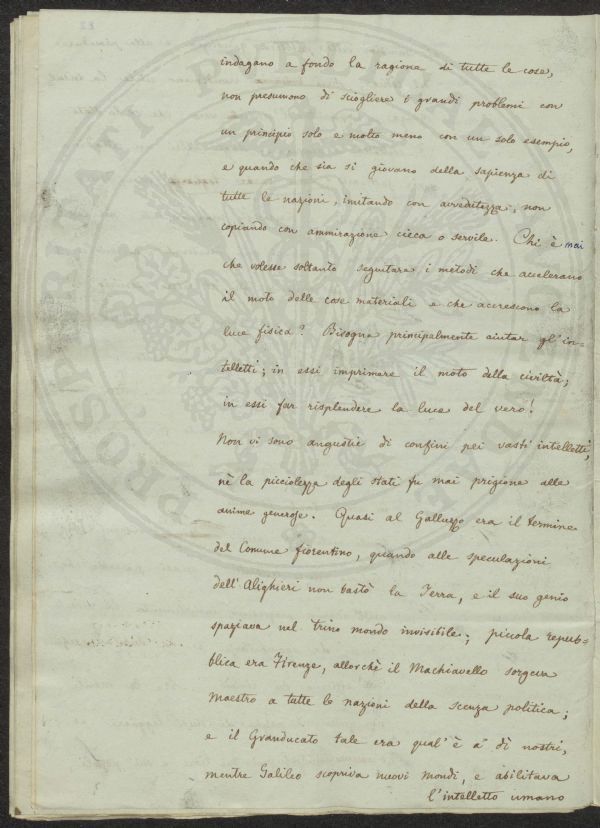 indagano a fondo la ragione di tutte le cose,
non presumono di sciogliere i grandi problemi con
un principio solo e molto meno con un solo esempio,
e quando che sia si giovano della sapienza di
tutte le nazioni, imitando con avvedutezza, non
copiando con ammirazione cieca o servile. Chi è mai
che volesse soltanto seguitare i metodi che accelerano
il moto delle cose materiali e che accrescono la
luce fisica? Bisogna principalmente aiutar gl'in-
telletti; in essi imprimere il moto della civiltà;
in essi far risplendere la luce del vero!
Non vi sono angustie di confini pei vasti intelletti,
nè la picciolezza degli stati fu mai prigione alle
anime generose. Quasi al Galluzzo era il termine
del Comune fiorentino, quando alle speculazioni
dell'Alighieri non bastò la Terra, e il suo genio
spaziava nel trino mondo invisibile; piccola repub-
blica era Firenze, allorchè il Machiavello sorgeva
Maestro a tutte le nazioni della scenza politica;
e il Granducato tale era qual'è a' dì nostri,
mentre Galileo scopriva nuovi mondi, e abilitava
l'intelletto umano
PROSPERITATI